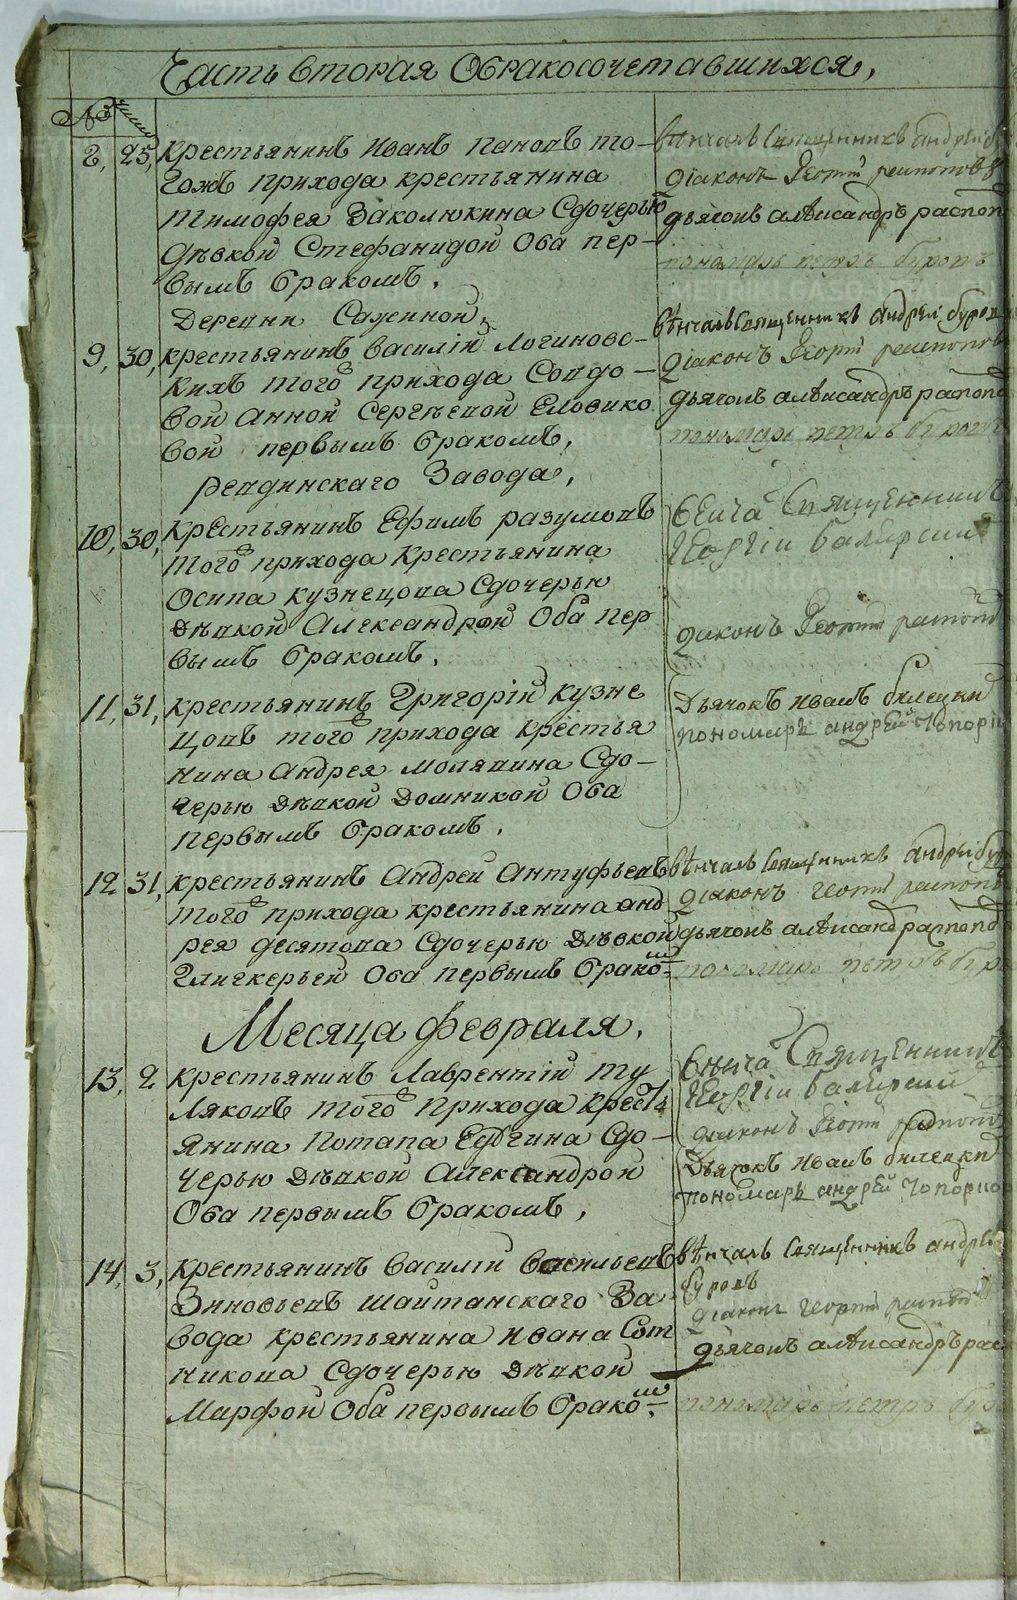 Часть вторая Обракосочетавшихся,
№
8, 25, крестьянинъ Иванъ Пановъ то-
гожъ прихода крестьянина
Тимофея Заколюкина Сдочерью
дѣвкой Стефанидой Оба пер-
вымъ бракомъ,
вѣнчалъ Священникъ андрей
діаконъ Георгий
дьячокъ алѣксандръ распоп
пономарь петръ буровъ
Деревни Сажиной,
9, 30, крестьянинъ Василій Логиновс-
кихъ того прихода Совдо-
вой Анной Сергѣевой Еловико
вой первымъ бракомъ,
вѣнчалъ Священникъ андрей буров
діаконъ Георгий
дьячокъ алѣксандръ распоп
пономарь петръ буровъ
Ревдинскаго Завода,
10, 30, Крестьянинъ Ефимъ разумовъ
того прихода Крестьянина
Осипа кузнецова Сдочерью
дѣвкой Александрой Оба пер
вымъ бракомъ,
Священникъ
Георгіи
діаконъ Георгий
11, 31, крестьянинъ Григорій кузне
цовъ того прихода крестья
нина Андрея Молявина Сдо-
черью дѣвкой Домникой Оба
первымъ бракомъ,
Дьячокъ иванъ билецки
пономарь андрей Топорко
12 31, крестьянинъ Андрей Антуфьевъ
того прихода крестьянина анд
рея десятова Сдочерью дѣвкой
Гликерьей Оба первымъ брако-м
вѣнчалъ Священникъ андрей бур
діаконъ георгий
дьячокъ алѣксанд распопо
пономарь петръ
Месяца февраля,
13, 2 крестьянинъ Лаврентій ту
ляковъ того прихода кресть
янина Потапа Сдо-
черью дѣвкой Александрой
Оба первымъ бракомъ,
Священникъ
Георгіи
діаконъ Георгий
Дьячокъ иванъ билецки
пономарь андрей Топорков
14, 3, крестьянинъ Василій Васильевъ
Зиновьевъ шайтанскаго За
вода крестьянина Ивана Сот
никова Сдочерью дѣвкой
Марфой Оба первымъ брако-м
вѣнчалъ Священникъ андрей
буровъ
діаконъ георгий
дьячокъ алѣксандръ рас
пономарь петръ буро